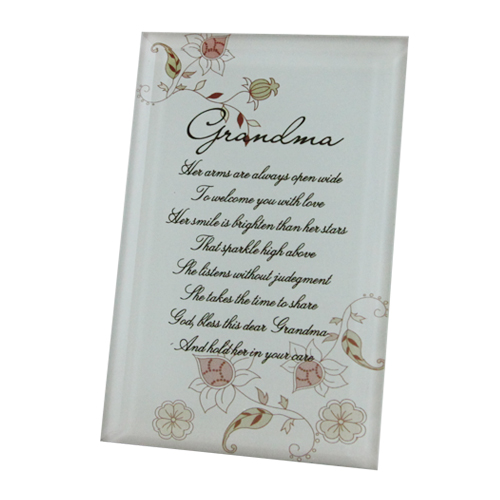 Grandma
Her arms are always open wide
To welcome you with love
Her smile is brighten than her stars
That sparkle high above
She listens without judegment
She takes the time to share
God, bless this dear Grandma
And hold her in your care